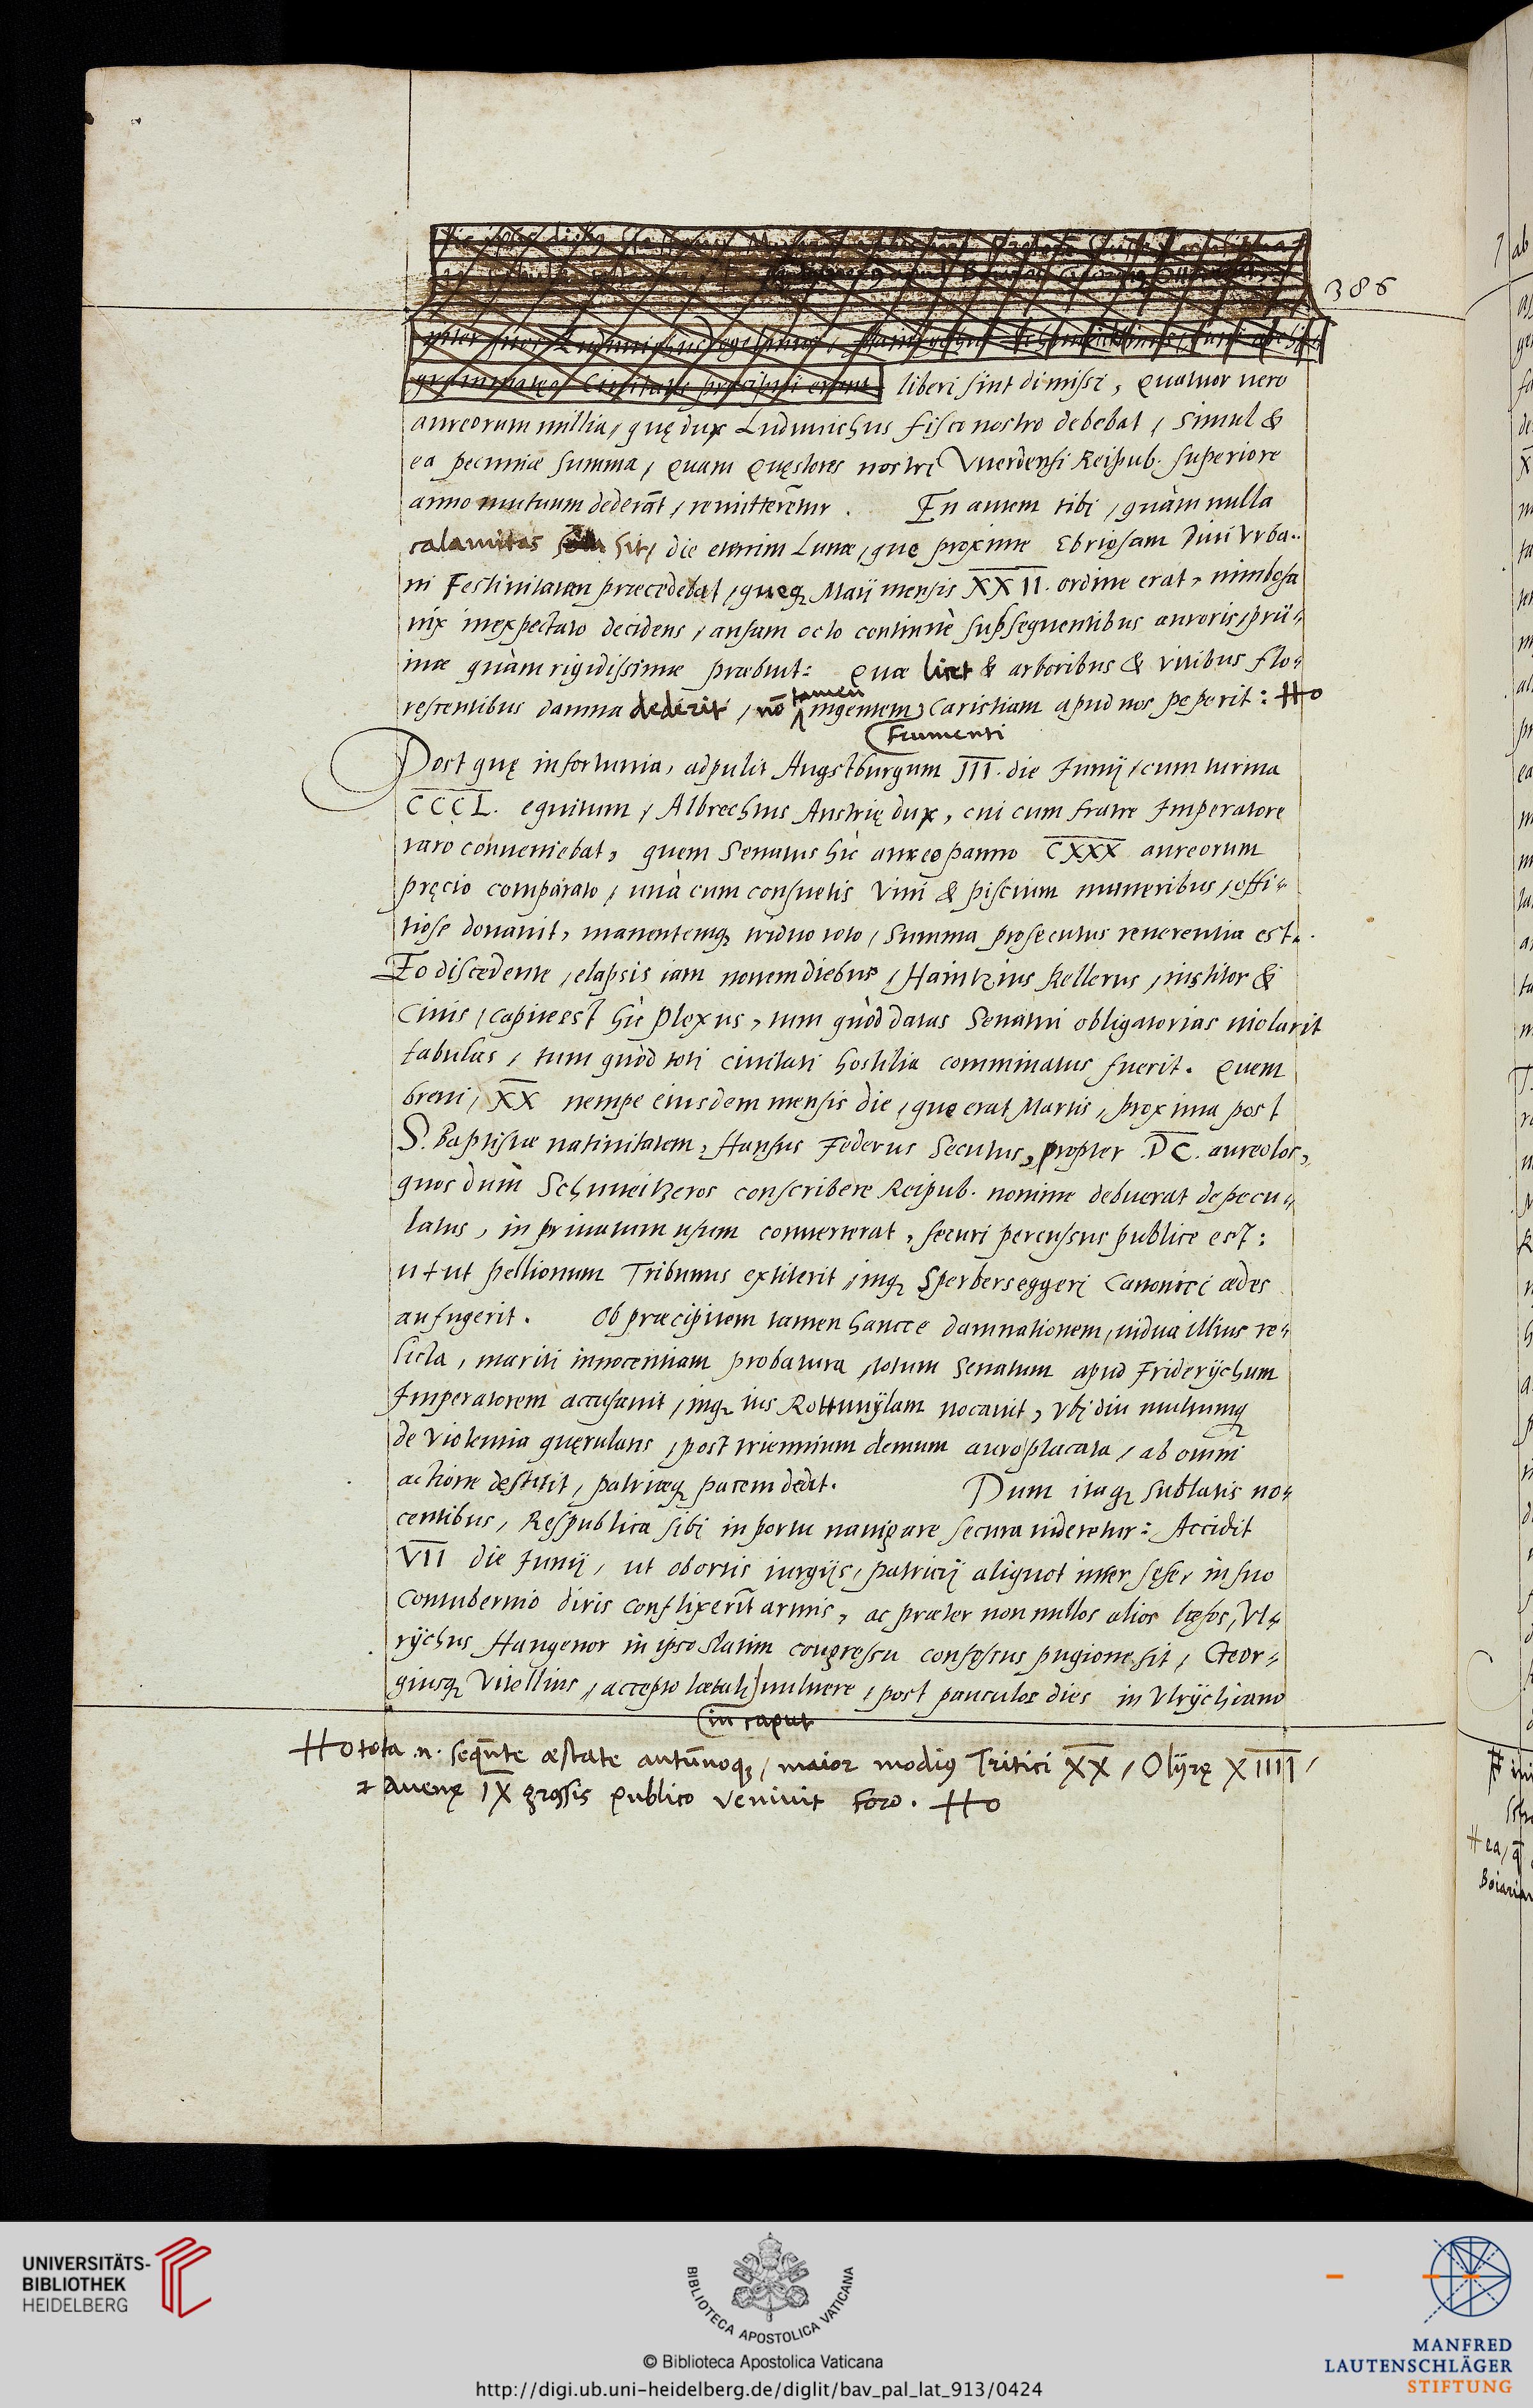 386
inter quos Ludunichus
grammateus Civitatis præcipui erant liberi sint dimissi, Quatuor uero
aureorum millia, quę dux Luduuichus fisco nostro debebat, simul &
ea pecuniæ summa, quam Quęstores nostri Vuerdensi Reipub. superiore
anno mutuum dederāt, remitterētur. En autem tibi, quàm nulla
calamitas sit, die etenim Lunæ, que proxime Ebriosam Diui Vrba..
ni Festiuitatem præcedebat, queq; Maij mensis XXII. ordine erat, nimbosa
nix inexpectato decidens, ansam octo continuè subsequentibus auroris, prui-
inæ quàm rigidissimæ præbuit: Quæ licet & arboribus & vitibus flo-
rescentibus damna dederit, nō tamen ingentem frumenti Caristiam apud nos peperit:
Post quę infortunia, adpulit Augstburgum III. die Junij, cum turma
CCCL. equitum, Albrechtus Austrię dux, cui cum fratre Imperatore
raro conueniebat, quem Senatus hic aureo panno CXXX aureorum
pręcio comparato, unà cum consuetis vini & piscium muneribus, offi-
tiose donauit, manentemq; triduo toto, summa prosecutus reuerentia est.
Eo discedente, elapsis iam nouem diebus, Haintzius Kellerus, institor &
Ciuis, capite est hic plexus, tum quòd datas Senatui obligatorias uiolarit
tabulas, tum quòd toti ciuitati hostilia comminatus fuerit. Quem
breui, XX nempe eiusdem mensis die, que erat Martis, proxima post
S. Baptistæ natiuitatem, Hansus Federus secutus, propter .DC. aureolos,
quos dum Schuueitzeros conscribere Reipub. nomine debuerat depecu-
latus, in priuatum usum conuerterat, securi percussus publice est:
utut pellionum Tribunus extiterit, inq; Sperberseggeri Canonici ædes
aufugerit. Ob præcipitem tamen hancce damnationem, uidua illius re-
licta, mariti innocentiam probatura, totum Senatum apud Friderÿchum
Imperatorem accusauit, inq; ius Rottuuÿlam uocauit, Vbi diu multumq;
de violentia quęrulans, post triennium demum auro placata, ab omni
actione destitit, patriæq; pacem dedit. Dum itaq; sublatis no-
centibus, Respublica sibi in portu nauigare secura uideretur: Accidit
VII die Junij, ut obortis iurgijs, patricij aliquot inter sese, in suo
contubernio diris conflixerīt armis, ac præter non nullos alios læsos, Vl-
rÿchus Hangenor in ipso statim congressu confossus pugione sit, Geor-
giusq; Vitellius, accepto lætali in caput uulnere, post pauculos dies in Vlrÿchiano
tota .n. sequēte æstate autūnoq;, maior modius Tritici XX, Olÿrę XIIII,
& auenę IX grossis publico veniuit foro.
UNIVERSITÄTS-
BIBLIOTHEK
HEIDELBERG
BIBLIOTECA APOSTOLICA VATICANA
© Biblioteca Apostolica Vaticana
http://digi.ub.uni-heidelberg.de/diglit/bav_pal_lat_913/0424
MANFRED
LAUTENSCHLÄGER
STIFTUNG